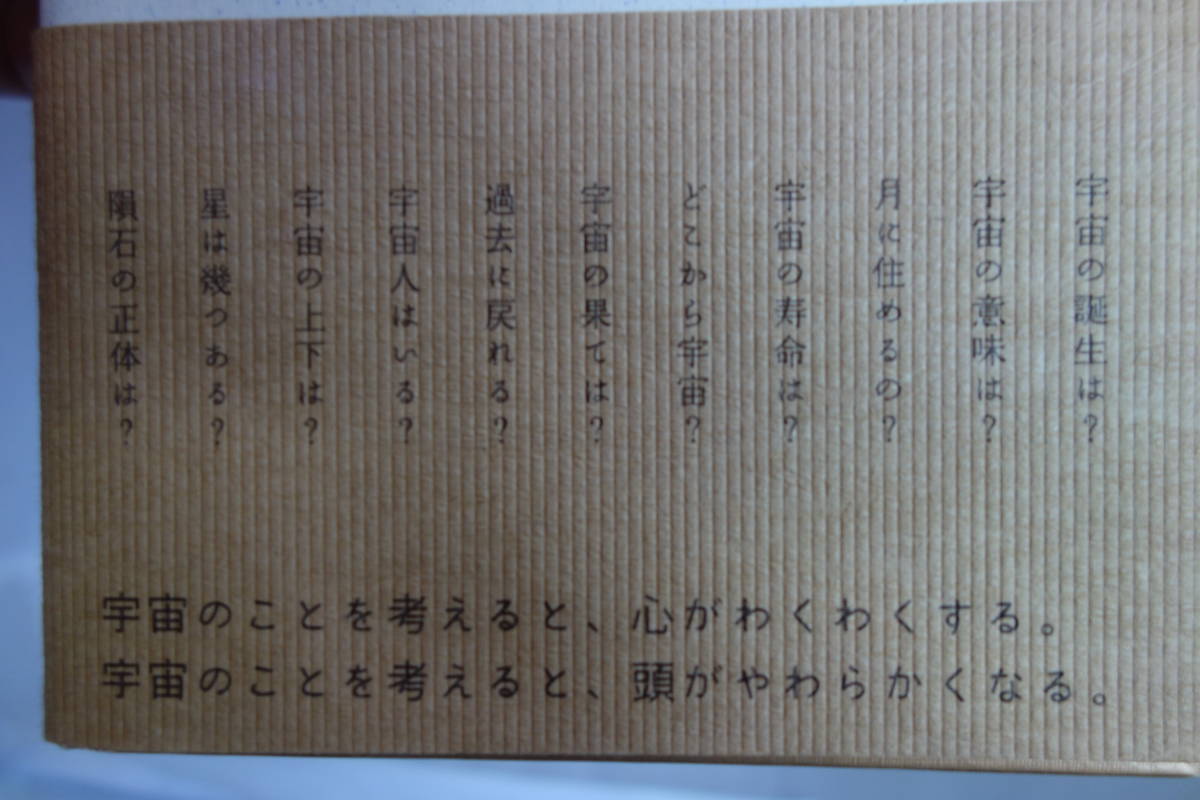 宇宙の誕生は?
宇宙の意味は?
月に住めるの?
宇宙の寿命は?
どこから宇宙?
宇宙の果ては?
過去に戻れる?
宇宙人はいる?
宇宙の上下は?
星は幾つある?
隕石の正体は?
宇宙のことを考えると、心がわくわくする。
宇宙のことを考えると、頭がやわらかくなる。